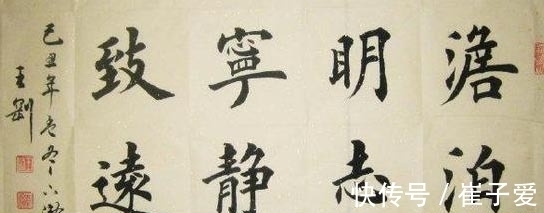 澹泊
明志
寧静
致遠
己丑年冬
王剛
快传号／崔子爱